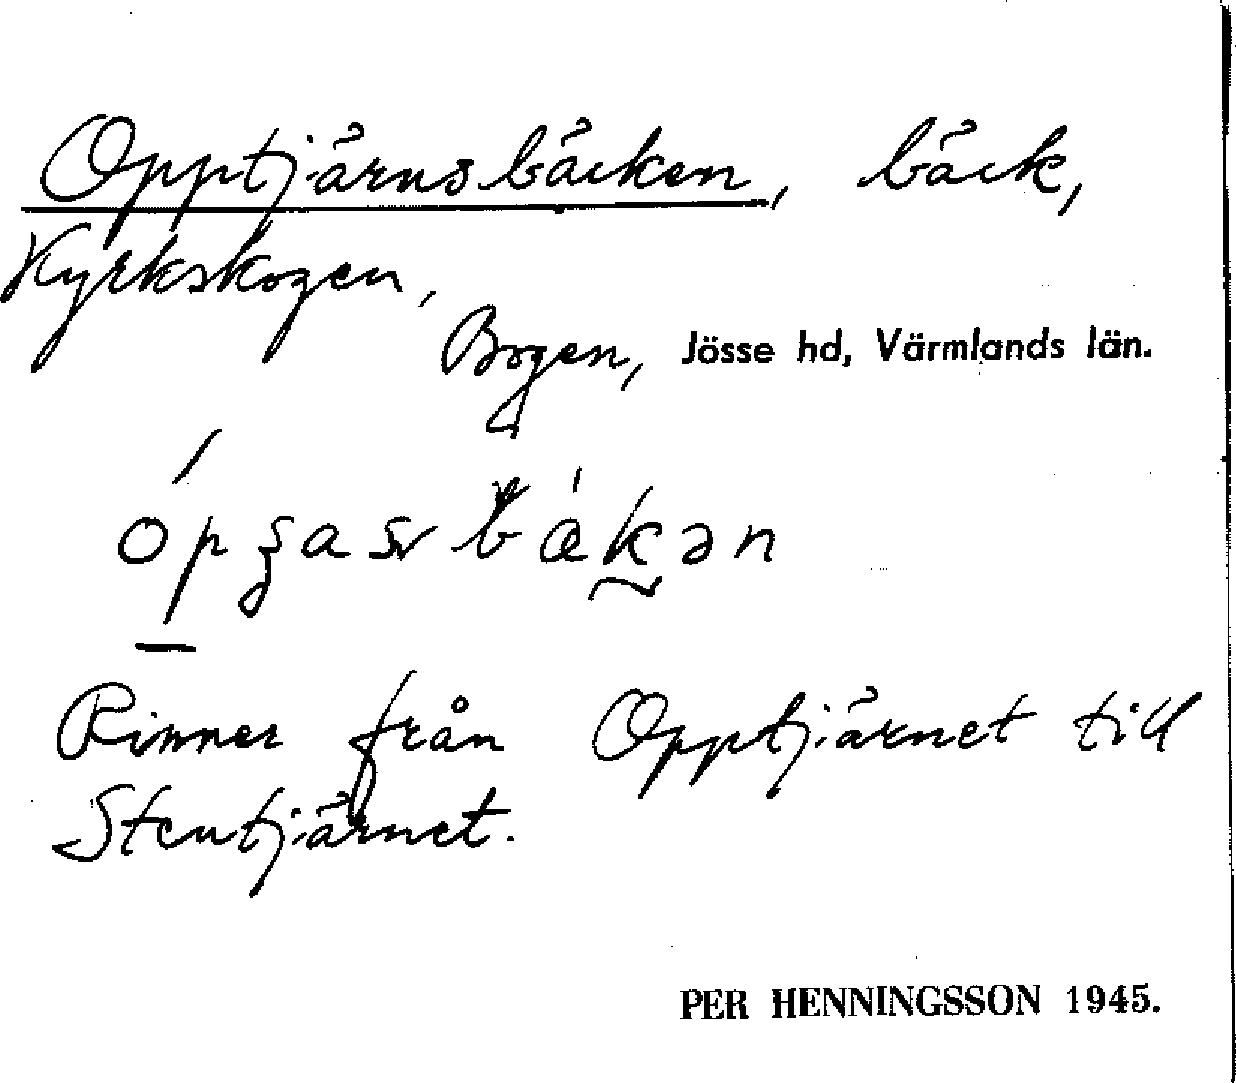 Opptjärnsbäcken, bäck,
Kyrkskogen,
Bogen, Jösse hd, Värmlands län.
Rinner från Opptjärnet till
Stentjärnet.
PER HENNINGSSON 1945.